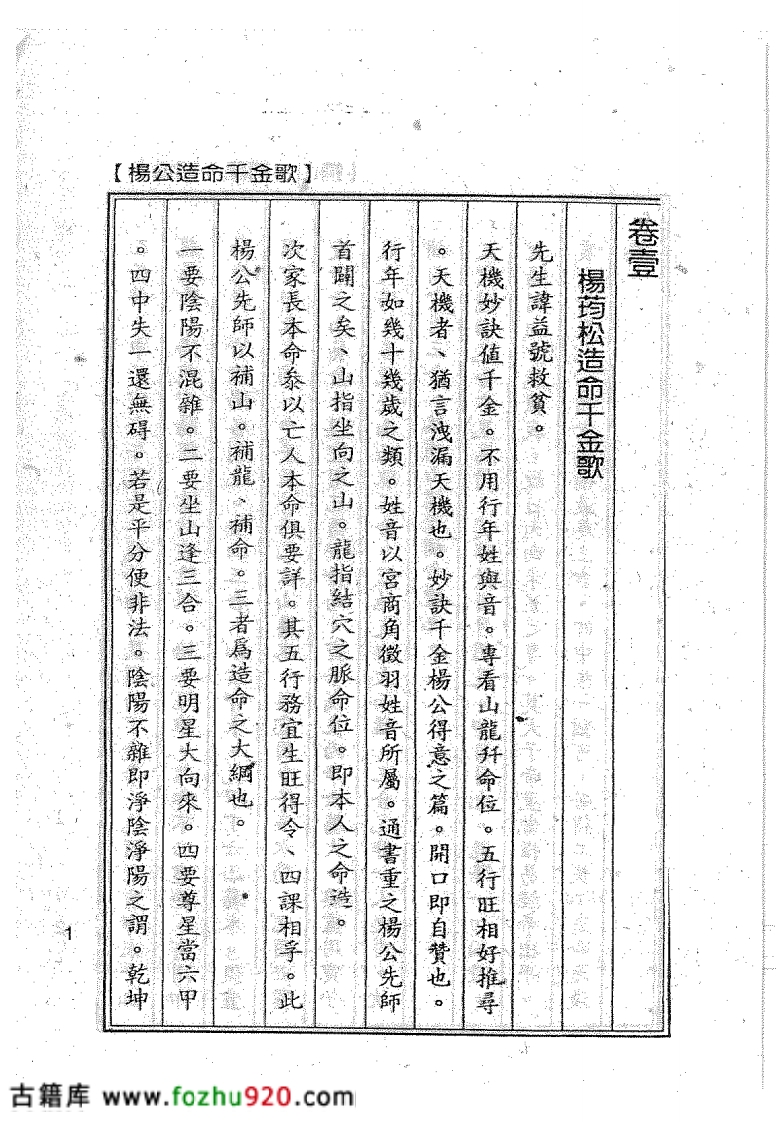 【楊公造命千金歌】
卷壹
楊筠松造命千金歌
先生諱益號救貧。
天機妙訣值千金。不用行年姓與音。專看山龍幷命位。五行旺相好推尋
。天機者、猶言洩漏天機也。妙訣千金楊公得意之篇。開口即自贊也。
行年如幾十幾歲之類。姓音以宮商角徵羽姓音所屬。通書重之楊公先師
首闢之矣、山指坐向之山。龍指結穴之脈命位。即本人之命造。
次家長本命叅以亡人本命俱要詳。其五行務宜生旺得令、四課相孚。此
楊公先師以補山。補龍、補命。三者爲造命之大綱也。
一要陰陽不混雜。二要坐山逢三合。三要明星大向來。四要尊星當六甲
。四中失一還無碍。若是平分便非法。陰陽不雜即淨陰淨陽之謂。乾坤
1
古籍库 www.fozhu920.com